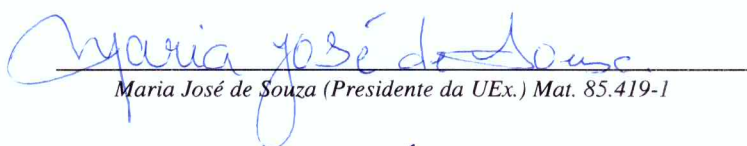 Maria José de Souza
Maria José de Souza (Presidente da UEx.) Mat. 85.419-1